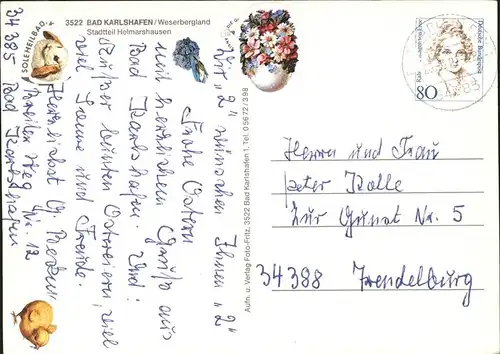 3522 BAD KARLSHAFEN/Weserbergland
Stadtteil Helmarshausen
SOLEHEILBAD
Wir "2" wünschen Ihnen "2"
Frohe Ostern
mit herzlichem Gruß aus
Bad Karlshafen. Und:
Außer bunten Ostereiern, viel
viel Sonne und Freude.
Herzlichst
Breiter Weg Nr. 12
34385 Bad Karlshafen
Aufn. u. Verlag Foto-Fritz, 3522 Bad Karlshafen 1, Tel. 05672/398
Deutsche Bundespost
80
Herrn und Frau
Peter Kolle
Zur Nr. 5
34388 Trendelburg